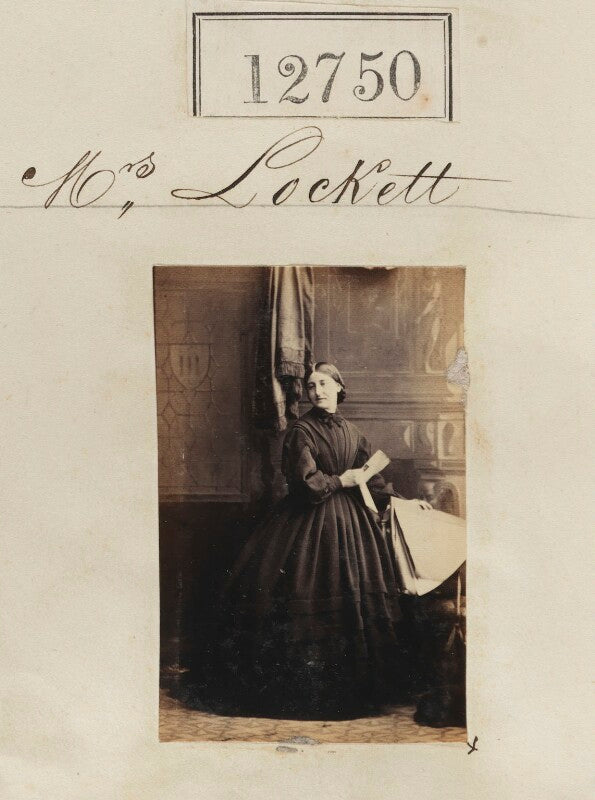 12750
Mrs Lockett